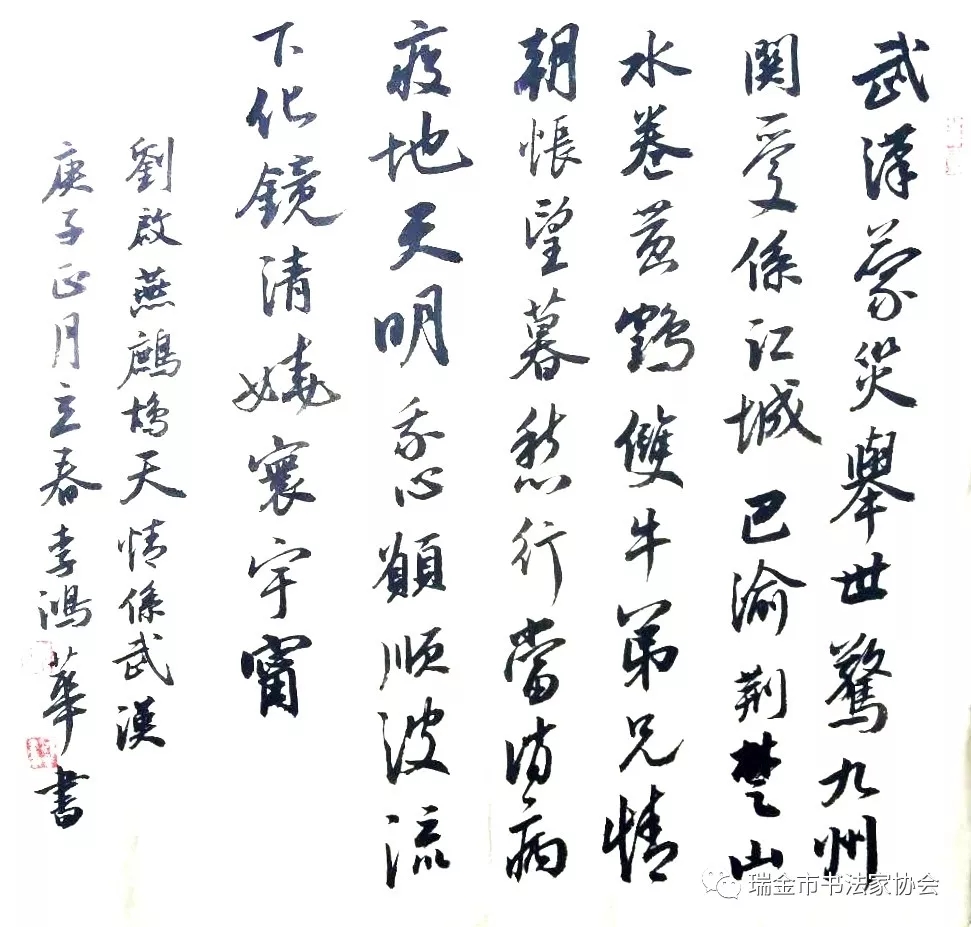 武漢蒙災舉世驚九州
関受係江城巴渝荆楚山
水卷黃鶴雙牛弟兄情
朝悵望暮愁行當消病
疫地天明我心願順波流
下化鏡清嬈寰宇甯
劉啟燕鷓鴣天情係武漢
庚子正月立春李鴻華書
瑞金市书法家协会